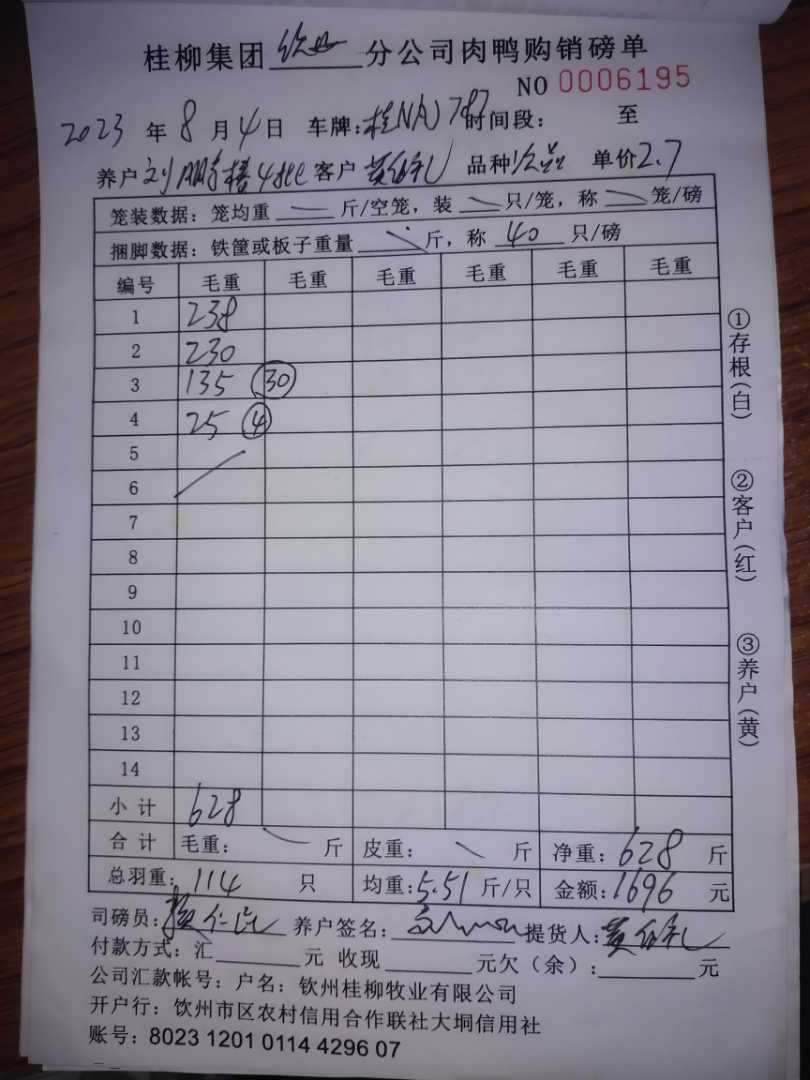 桂柳集团 钦州 分公司肉鸭购销磅单
NO 0006195
2023 年 8 月 4 日 车牌:桂NAJ787 时间段: 至
养户 刘 客户 黄 品种 次品 单价 2.7
笼装数据:笼均重 斤/空笼,装 只/笼,称 笼/磅
捆脚数据:铁筐或板子重量 斤,称 40 只/磅
编号 毛重 毛重 毛重 毛重 毛重 毛重
1 238
2 230
3 135 ㉚
4 25 ④
5
6
7
8
9
10
11
12
13
14
小计 628
合计 毛重: 斤 皮重: 斤 净重:628 斤
总羽重:114 只 均重:5.51 斤/只 金额:1696 元
司磅员: 养户签名: 提货人:黄
付款方式:汇 元 收现 元欠(余): 元
公司汇款帐号:户名:钦州桂柳牧业有限公司
开户行:饮州市区农村信用合作联社大垌信用社
账号:8023 1201 0114 4296 07
①存根(白)
②客户(红)
③养户(黄)